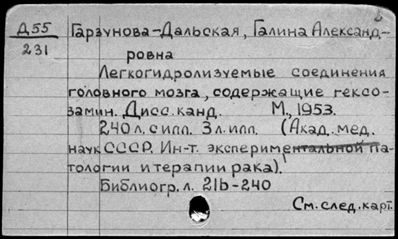 Д55
231
Гарзунова-Дальская, Галина Александ-
ровна
Легкогидролизуемые соединения
головного мозга, содержащие гексо-
замин. Дисс. канд. М., 1953.
240 л. с илл. 3 л. илл. (Акад. мед.
наук СССР. Ин-т. экспериментальной па-
тологии и терапии рака).
Библиогр. л. 216-240
См. след. карт.